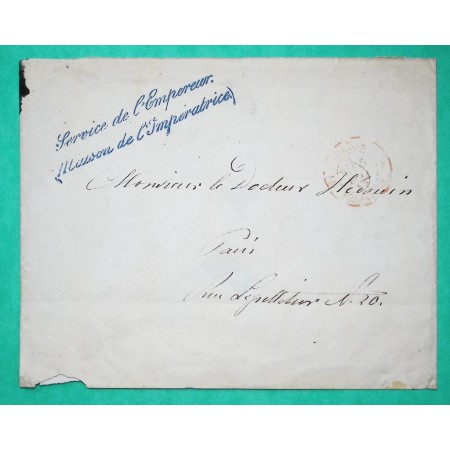 Service de l'Empereur.
(Maison de l'Impératrice)
Monsieur le Docteur
Paris
Rue Lepelletier N. 20.